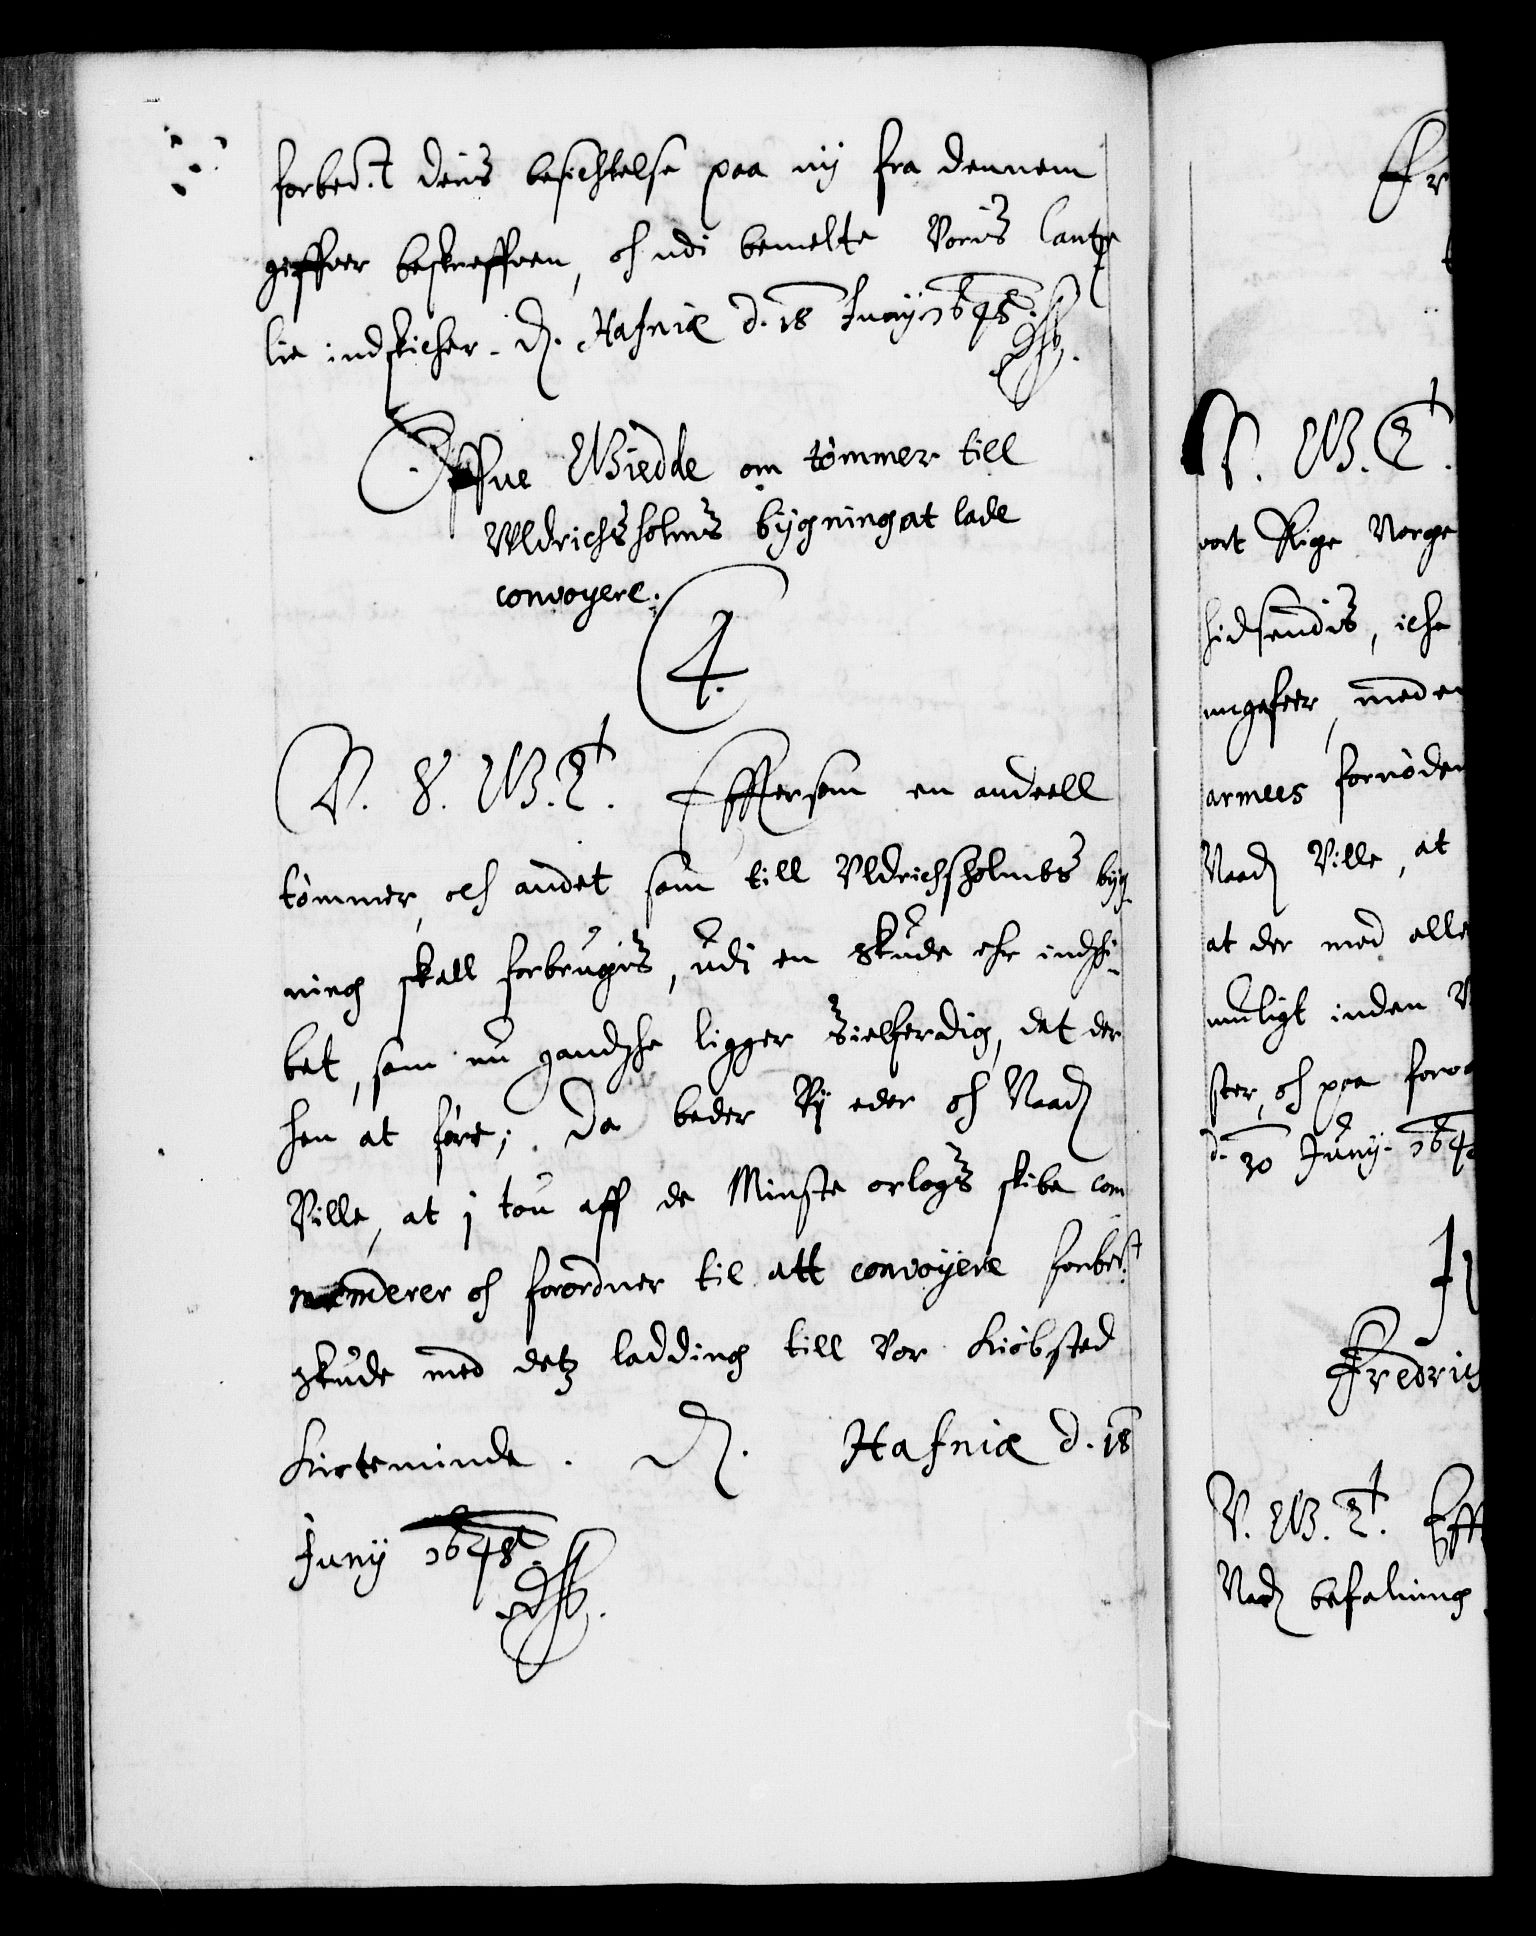 forbed.t dens besichtelse paa ny fra dennem
giffver beskreffven, oh udi bemelte Voris Cantze
lie indskicher. D. Hafniæ d. 18 Juny 1648.
Offue Giedde om tømmer till
Uldrichsholms bygning at lade
convoyere.
4.
V. G. T. Effersom en andeell
tømmer, och andet som till Uldrichsholmes byg-
ning skall forbrugis, udi en skude ehr indski-
bet, som nu gandske ligger sielferdig, det der
hen at føre; Da beder Vy eder oh Naad
Ville, at i tou aff de Minste orlogs skibe com
menderer oh forordner til att convoyere forbe.t
skude med detz ladding till Vor Kiøbsted
Kirteminde. D. Hafniæ d. 18
Juny 1648
Fr
V. G. T.
vort Rige Norge
hidsendis, iche
ungefeer, meden
armees fornøden
Naad Ville, at
at der med alle
muligt inden V
ster, oh paa forv
d. 30 Juny. 164
Fredrich
V. G. T. Eff
Naad befaling